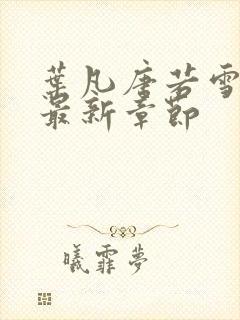 葉凡唐若雪
最新章節
曦霏夢